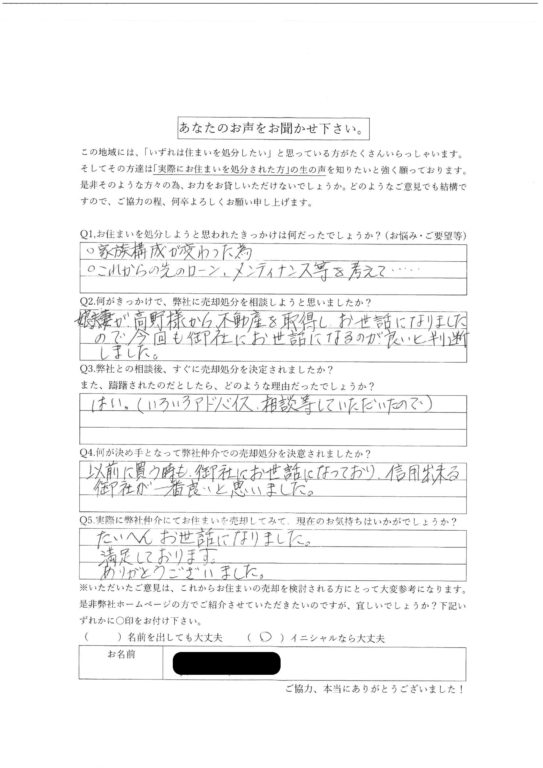 あなたのお声をお聞かせ下さい。
この地域には、「いずれは住まいを処分したい」と思っている方がたくさんいらっしゃいます。
そしてその方達は「実際にお住まいを処分された方」の生の声を知りたいと強く願っております。
是非そのような方々の為、お力をお貸しいただけないでしょうか。どのようなご意見でも結構で
すので、ご協力の程、何卒よろしくお願い申し上げます。
Q1.お住まいを処分しようと思われたきっかけは何だったでしょうか?(お悩み・ご要望等)
○家族構成が変わった為
○これからの先のローン、メンテイナンス等を考えて・・・・・
Q2.何がきっかけで、弊社に売却処分を相談しようと思いましたか?
が高野様から不動産を取得し、お世話になりました
ので今回も御社にお世話になるのが良いと判断
しました。
Q3.弊社との相談後、すぐに売却処分を決定されましたか?
また、躊躇されたのだとしたら、どのような理由だったでしょうか?
はい。(いろいろアドバイス、相談等していただいたので)
Q4.何が決め手となって弊社仲介での売却処分を決意されましたか?
以前に買う時も、御社にお世話になっており、信用出来る
御社が一番良いと思いました。
Q5.実際に弊社仲介にてお住まいを売却してみて、現在のお気持ちはいかがでしょうか?
たいへんお世話になりました。
満足しております。
ありがとうございました。
※いただいたご意見は、これからお住まいの売却を検討される方にとって大変参考になります。
是非弊社ホームページの方でご紹介させていただきたいのですが、宜しいでしょうか?下記い
ずれかに○印をお付け下さい。
( )名前を出しても大丈夫 (○)イニシャルなら大丈夫
お名前
ご協力、本当にありがとうございました!